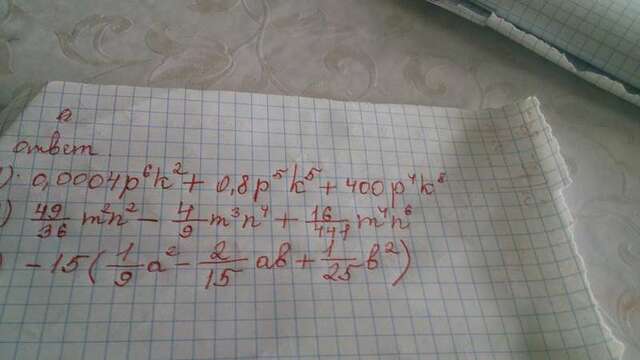 ответ
) 0,0004p⁶k² + 0,8p⁵k⁵ + 400p⁴k⁸
) 49/36 m²n² - 4/9 m³n⁴ + 16/441 m⁴n⁶
) - 15(1/9 a² - 2/15 ab + 1/25 b²)